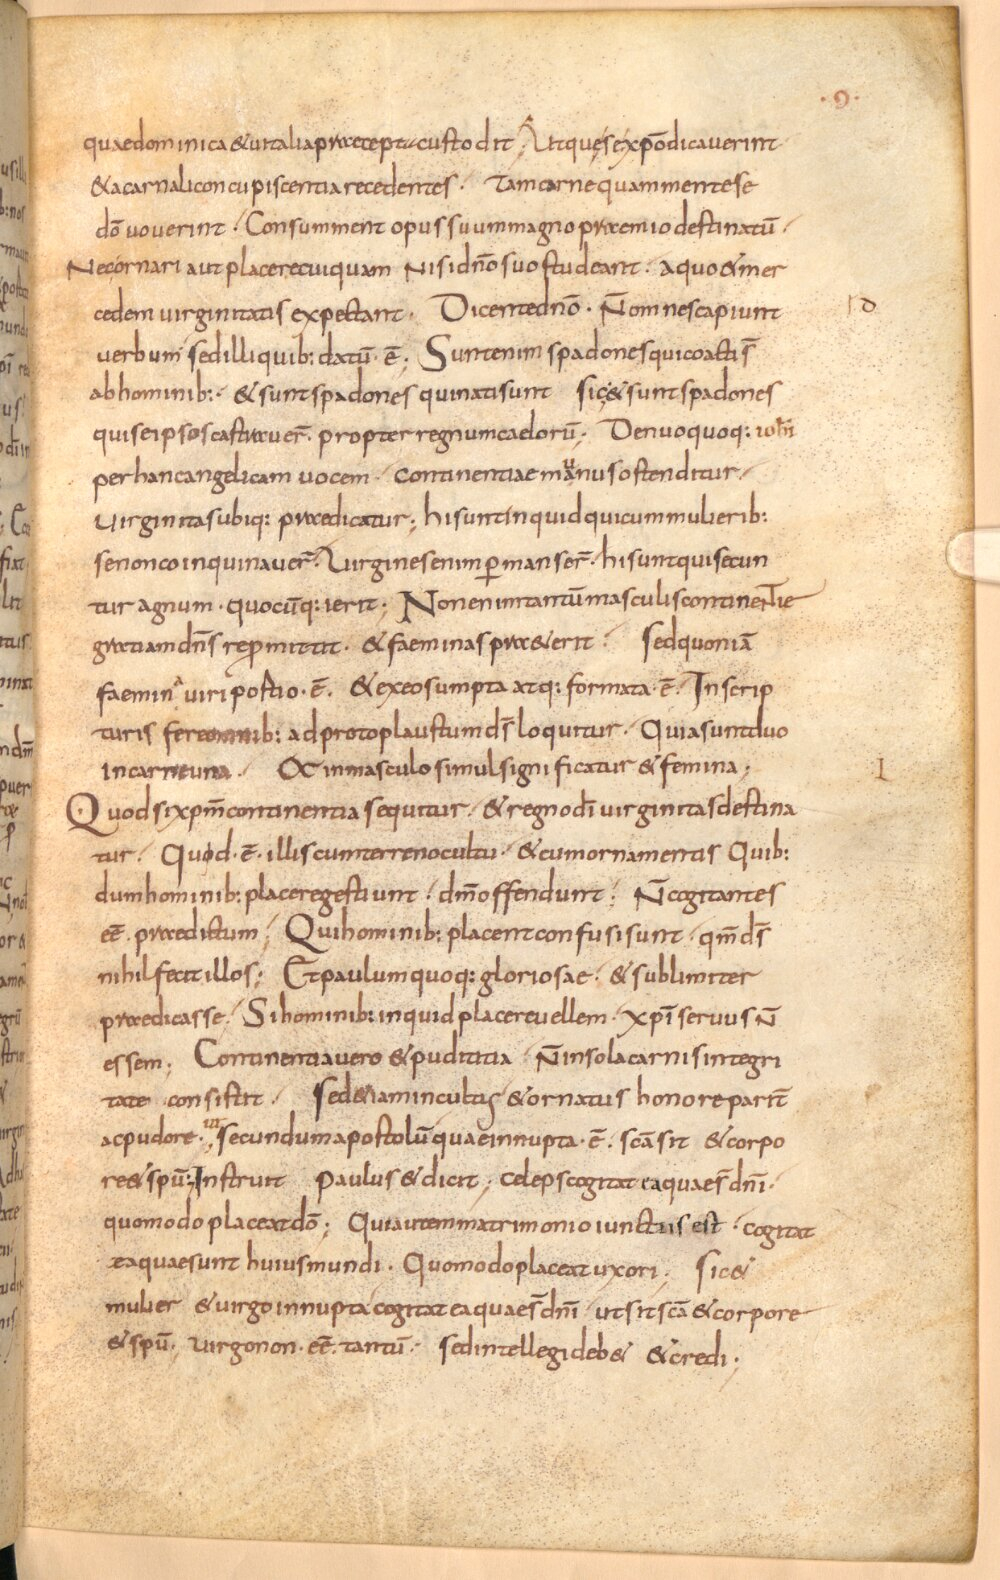 ·9·
quae dominica & uitalia praecepta custodit; At quę se xpō dicauerint
& a carnali concupiscentia recedentes. Tam carne quam mente se
dō uouerint. Consumment opus suum magno praemio destinatū.
Nec ornari aut placere cuiquam nisi dn̄o suo studeant. a quo & mer
cedem uirginitatis expectant. Dicente dn̄o. N̄ omnes capiunt
uerbum sed illi quib: datū ē; Sunt enim spadones qui coacti s̄
ab hominib:. & sunt spadones qui nati sunt sic & sunt spadones
qui se ipsos castrauer̄. propter regnum caelorū; Denuo quoq:
per hanc angelicam uocem continentiae munus ostenditur.
Uirginitas ubiq: praedicatur; hi sunt inquid qui cum mulierib:
se non coinquinauer̄. Uirgines enim ꝑmanser̄. hi sunt qui secun
tur agnum. quocūq: ierit; Non enim tantū masculis continentie
gratiam dn̄s repromittit. & faeminas praeterit sed quoniā
faemina uiri portio ē. & ex eo sumpta atq: formata ē. In scrip
turis fere omnib: ad protoplaustum ds̄ loquitur. Quia sunt duo
in carne una. Ac in masculo simul significatur & femina;
Quod si xp̄m continentia sequitur. & regno dī uirginitas destina
tur. Quod ē illis cum terreno cultu. & cum ornamentis Quib:
dum hominib: placere gestiunt. dm̄ offendunt; N̄ cogitantes
eē praedictum; Qui hominib: placent confusi sunt. qm̄ ds̄
nihil fecit illos; Et paulum quoq: gloriosae. & sublimiter
praedicasse. Si hominib: inquid placere uellem. xp̄i seruus n̄
essem; Continentia uero & pudititia N̄ in sola carnis integri
tate consistit. sed &iam in cultus & ornatus honore parit̄
ac pudore. ut secundum apostolū quae innupta ē. sc̄a sit & corpo
re & spū: Instruit Paulus & dicit; Celeps cogitat ea quae s̄ dn̄i.
quomodo placeat dō; Qui autem matrimonio iunctus est. cogitat
ea quae sunt huius mundi. Quomodo placeat uxori; sic &
mulier & uirgo innupta cogitat ea quae s̄ dn̄i ut sit sc̄a & corpore
& spū. uirgo non eē tantū. sed intellegi deb& & credi;